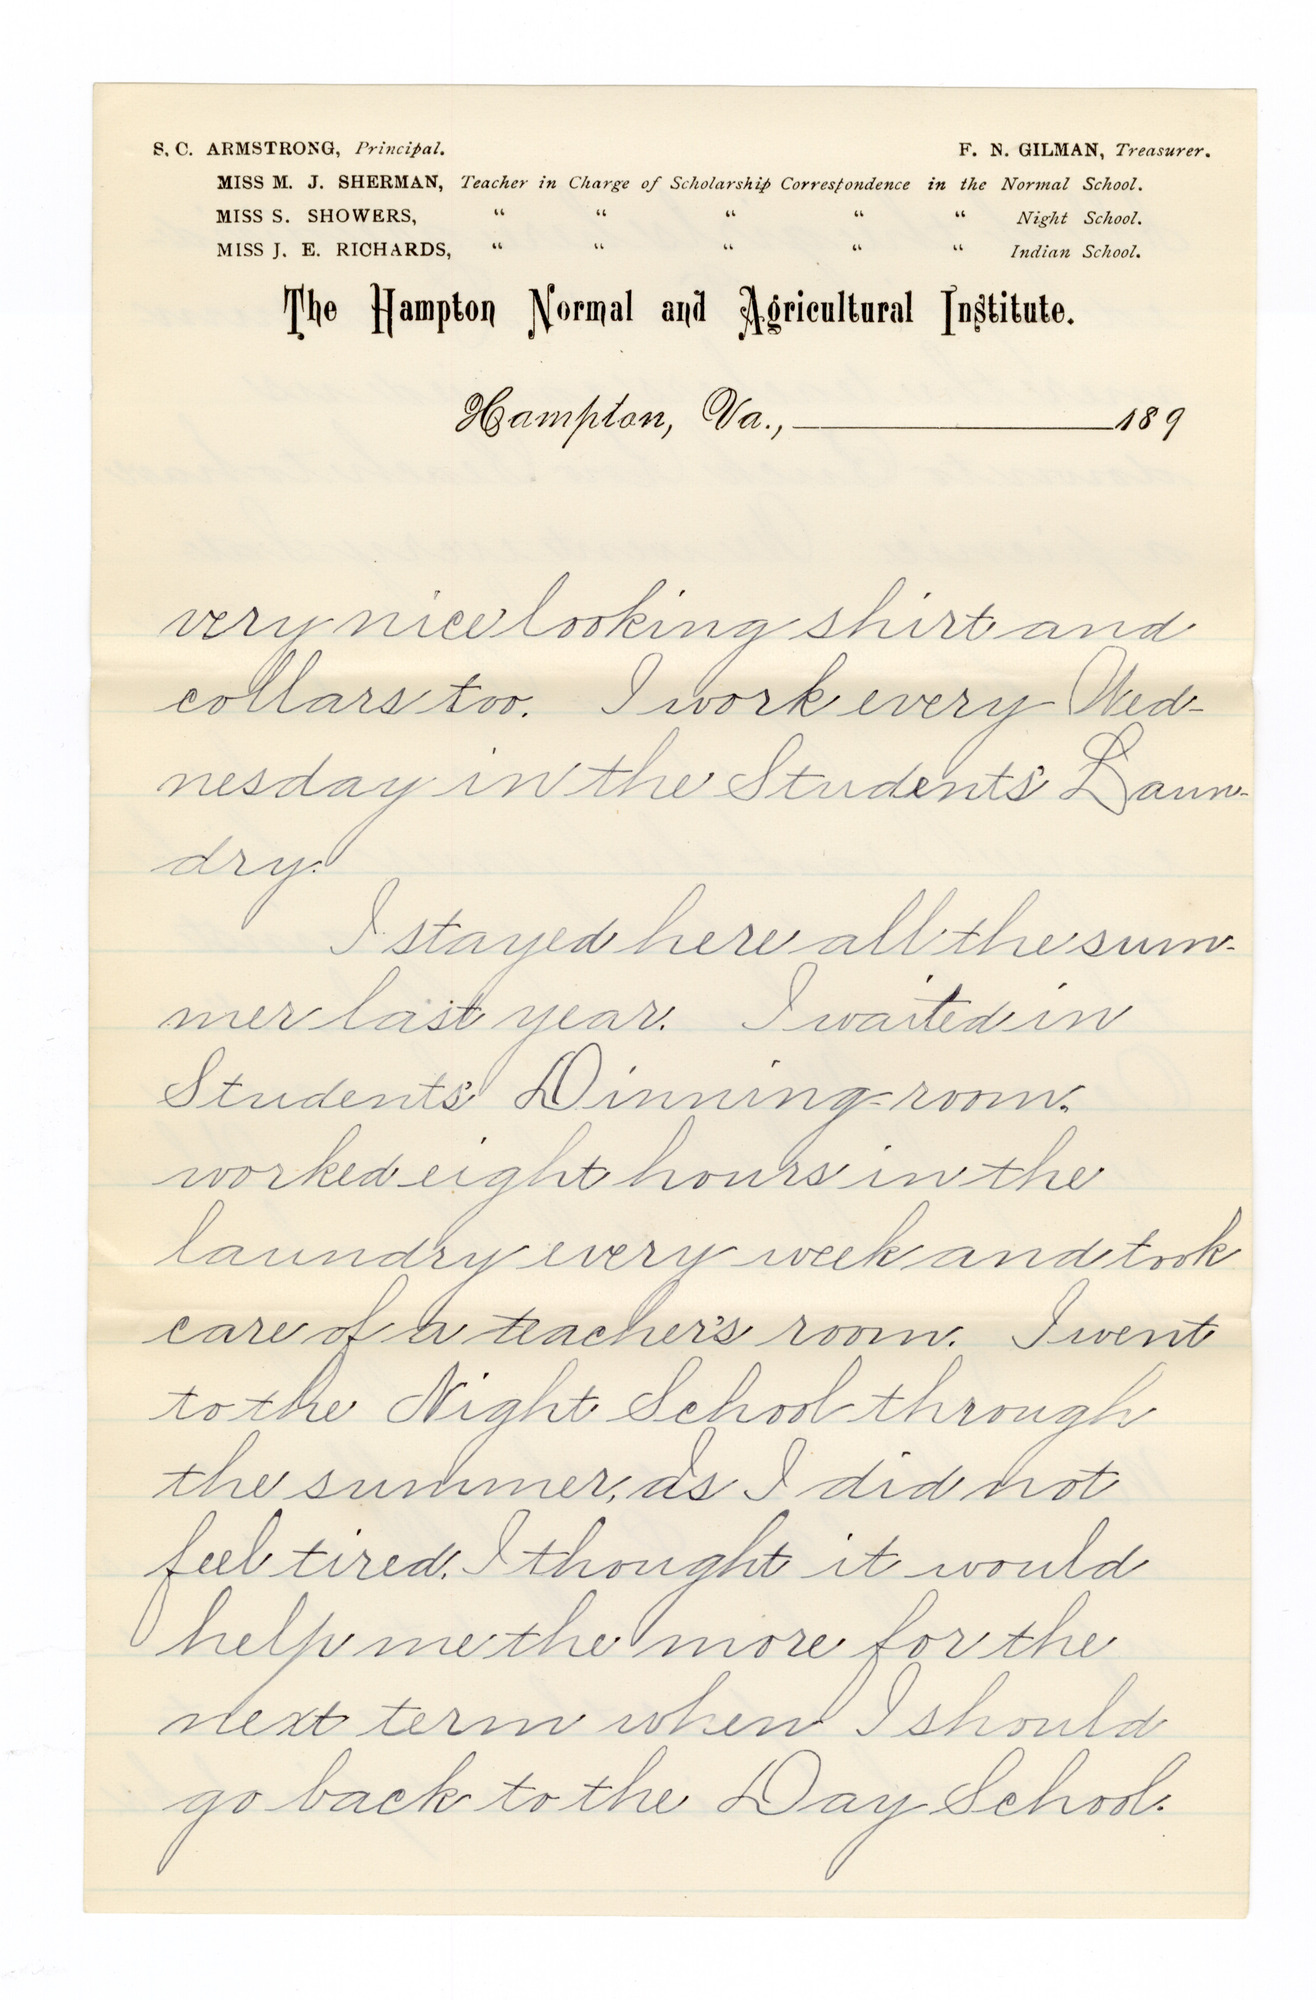 S. C. ARMSTRONG, Principal. F. N. GILMAN, Treasurer.
MISS M. J. SHERMAN, Teacher in Charge of Scholarship Correspondence in the Normal School.
MISS S. SHOWERS, " " " " " Night School.
MISS J. E. RICHARDS, " " " " " Indian School.
The Hampton Normal and Agricultural Institute.
Hampton, Va., 189
very nice looking shirt and
collars too. I work every Wed-
nesday in the Students' Laun-
dry.
I stayed here all the sum-
mer last year. I waited in
Students' Dinning-room.
worked eight hours in the
laundry every week and took
care of a teacher's room. I went
to the Night School through
the summer, as I did not
feel tired. I thought it would
help me the more for the
next term when I should
go back to the Day School.